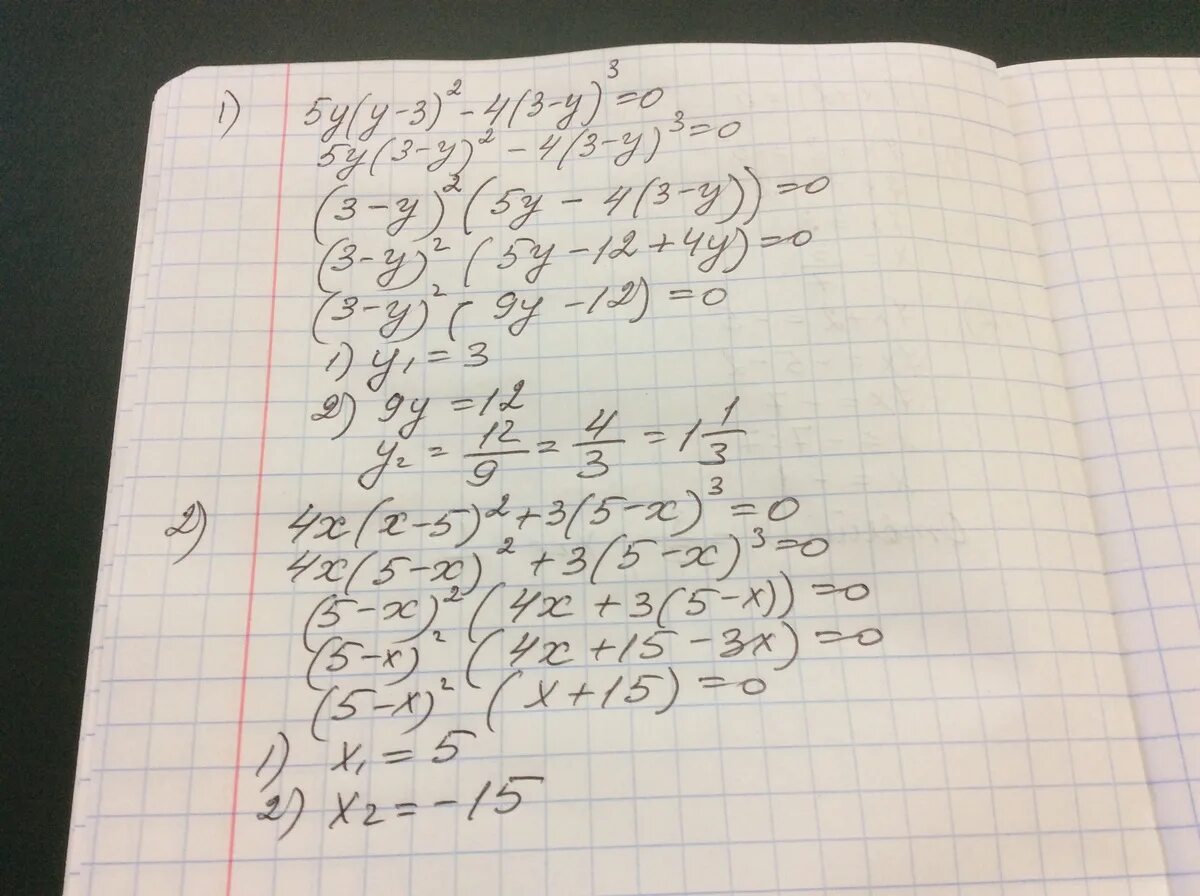 1) 5y(y-3)² - 4(3-y)³ = 0
5y(3-y)² - 4(3-y)³ = 0
(3-y)² (5y - 4(3-y)) = 0
(3-y)² (5y - 12 + 4y) = 0
(3-y)² (9y - 12) = 0
1) y₁ = 3
2) 9y = 12
y₂ = 12/9 = 4/3 = 1 1/3
2) 4x(x-5)² + 3(5-x)³ = 0
4x(5-x)² + 3(5-x)³ = 0
(5-x)² (4x + 3(5-x)) = 0
(5-x)² (4x + 15 - 3x) = 0
(5-x)² (x + 15) = 0
1) x₁ = 5
2) x₂ = -15